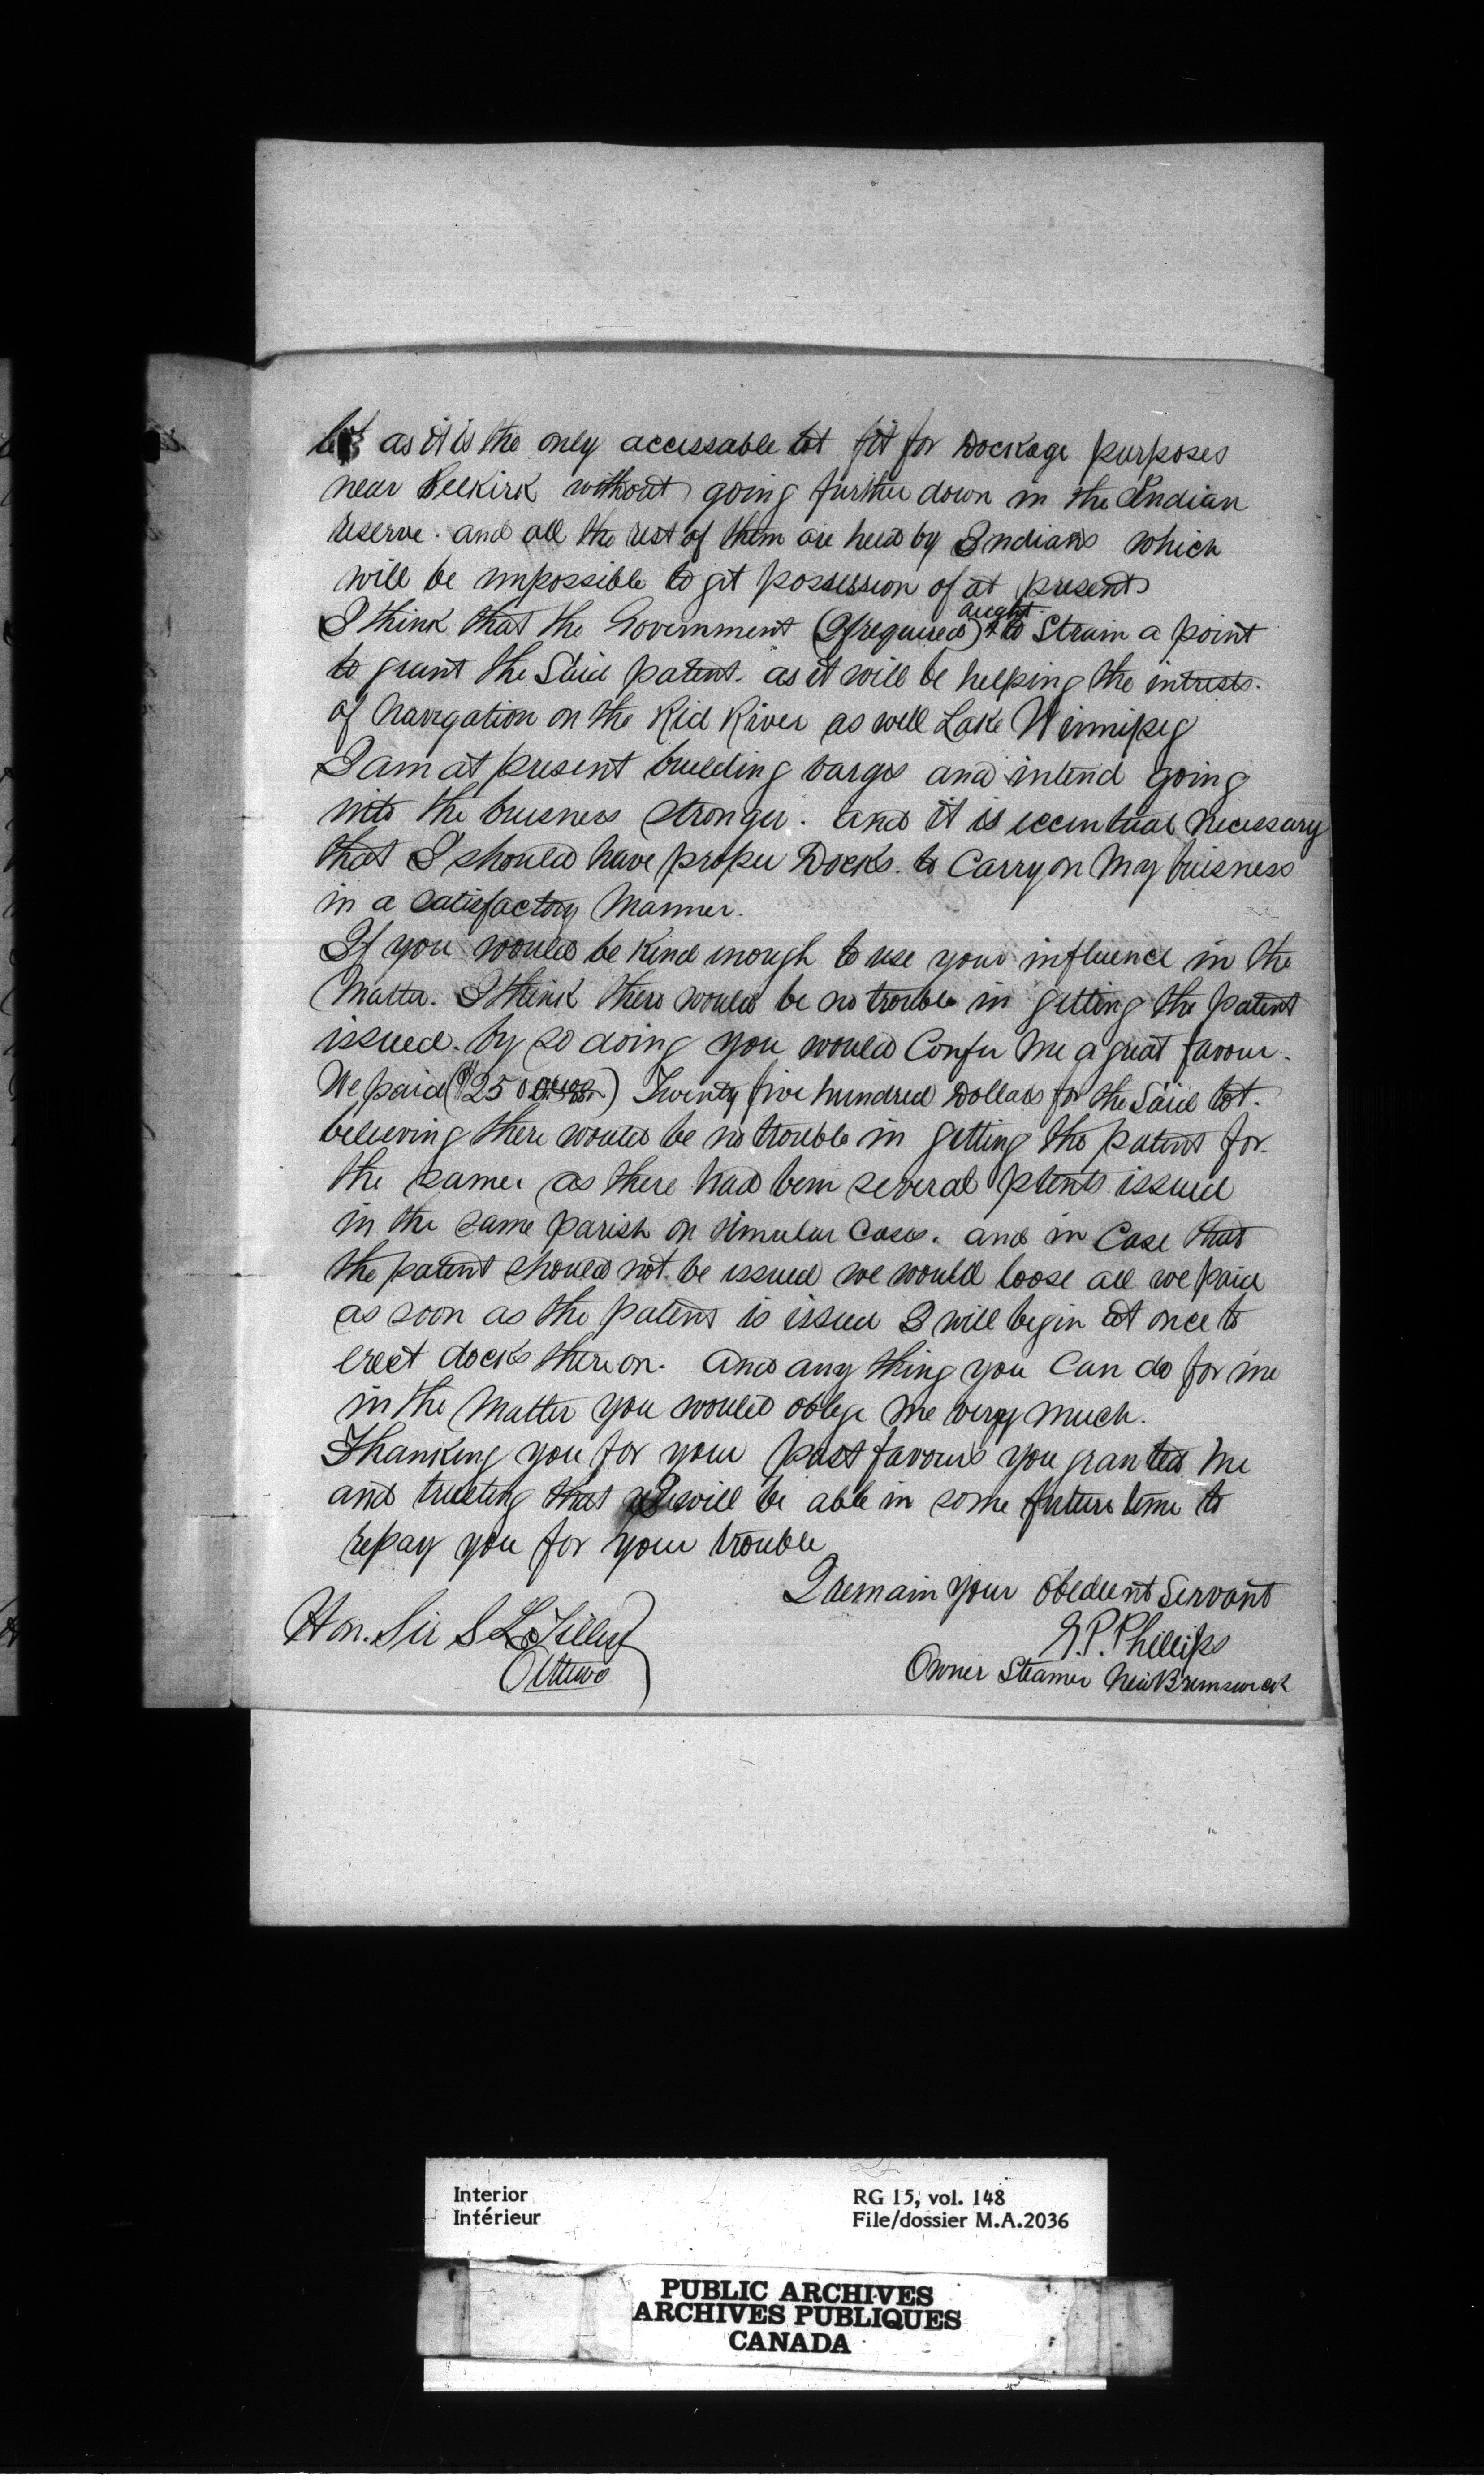 lot as it is the only accessable lot fit for Dockage purposes
near Selkirk without going further down in the Indian
reserve. and all the rest of them are held by Indians which
will be impossible to get possession of at present
aught
I think that the Government (If required) to Strain a point
to grant the Said patent. as it will be helping the intrests.
of Navigation on the Red River as well Lake Winnipeg
I am at present building barges and intend going
into the buisness stronger. and it is necessary
that I should have proper Docks. to Carry on My buisness
in a satisfactory Manner.
If you would be Kind enough to use your influence in the
Matter. I think there would be no trouble in getting the patent
issued. by so doing you would Confer Me a great favour.
We paid ($2500) Twenty five hundred Dollars for the Said lot.
believing there would be no trouble in getting the patent for.
the same. as there had been several ptents issued
in the same parish on simular Cases. and in Case that
the patent should not be issued we would loose all we paid
as soon as the patent is issued I will begin at once to
erect docks there on. and any thing you Can do for me
in the Matter you would oblige Me very Much.
Thanking you for your past favours you granted Me
and trusting that I will be able in some future time to
repay you for your trouble
I remain Your Obedient Servant
Hon. Sir S L Tilley
Ottawa
G.P. Phillips
Owner Steamer New Brunswick
Interior
Intérieur
RG 15, vol. 148
File/dossier M.A.2036
PUBLIC ARCHIVES
ARCHIVES PUBLIQUES
CANADA